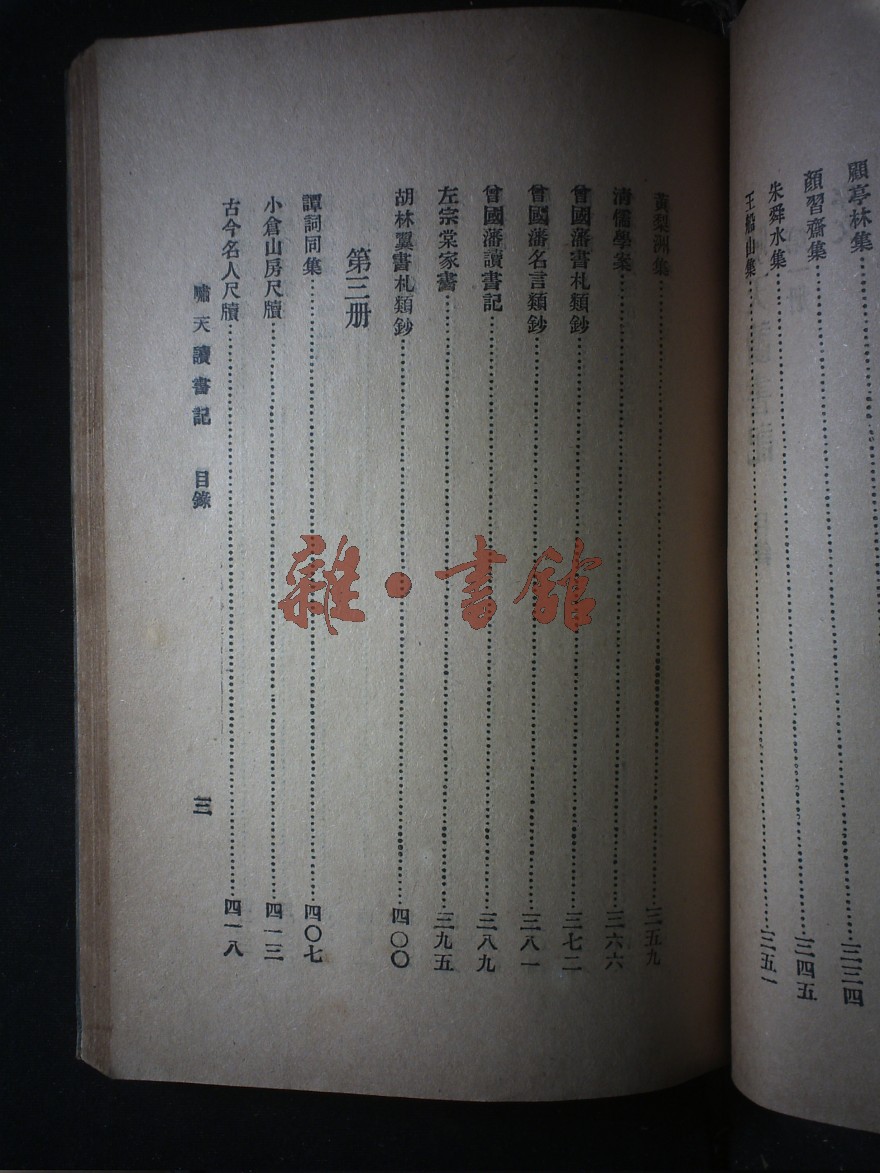 顧亭林集⋯⋯三三四
顏習齋集⋯⋯三四五
朱舜水集⋯⋯三五一
王船山集⋯⋯
黃梨洲集⋯⋯三五九
清儒學案⋯⋯三六六
曾國藩書札類鈔⋯⋯三七二
曾國藩名言類鈔⋯⋯三八一
曾國藩讀書記⋯⋯三八九
左宗棠家書⋯⋯三九五
胡林翼書札類鈔⋯⋯四〇〇
第三册
譚詞同集⋯⋯四〇七
小倉山房尺牘⋯⋯四一三
古今名人尺牘⋯⋯四一八
嘯天讀書記 目錄 三
雜·書館